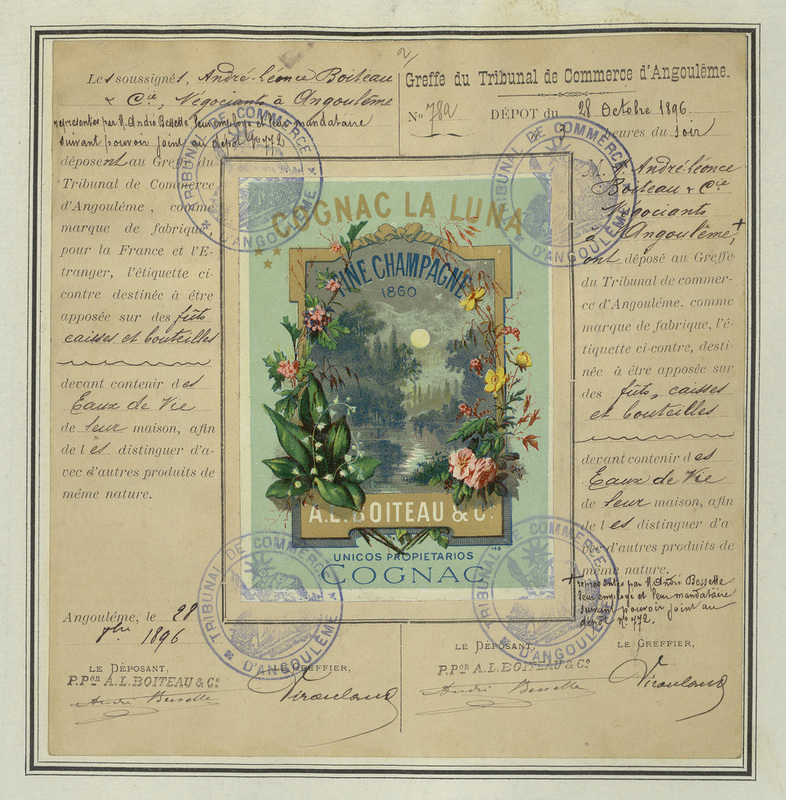 2
Les soussignés, André-Léonce Boiteau
& Cie, Négociants à Angoulême
représentés par M. André Bessette leur employé et leur mandataire
suivant pouvoir joint au dépôt No 772
déposent au Greffe du
Tribunal de Commerce
d'Angoulême, comme
marque de fabrique,
pour la France et l'E-
tranger, l'étiquette ci-
contre destinée à être
apposée sur des fûts
caisses et bouteilles
devant contenir des
Eaux de Vie
de leur maison, afin
de les distinguer d'a-
vec d'autres produits de
même nature.
Angoulême, le 28
8bre 1896
LE DÉPOSANT,
LE GREFFIER,
P.Pon A.L. BOITEAU & Co
André Bessette
Greffe du Tribunal de Commerce d'Angoulême.
No 782
DÉPOT du 28 Octobre 1896
heures du soir
M. M. André-Léonce
Boiteau & Cie
Négociants
à Angoulême, +
ont déposé au Greffe
du Tribunal de commer-
ce d'Angoulême. comme
marque de fabrique, l'é-
tiquette ci-contre, desti-
née à être apposée sur
des fûts, caisses
et bouteilles
devant contenir des
Eaux de Vie
de leur maison, afin
de les distinguer d'a-
vec d'autres produits de
même nature.
+ représentés par M. André Bessette
leur employé et leur mandataire
suivant pouvoir joint au
dépôt No 772.
LE DÉPOSANT,
LE GREFFIER,
P.Pon A.L. BOITEAU & Co
André Bessette
COGNAC LA LUNA
FINE CHAMPAGNE
1860
A.L. BOITEAU & Co.
UNICOS PROPIETARIOS
COGNAC
TRIBUNAL DE COMMERCE
D'ANGOULÊME
TRIBUNAL DE COMMERCE
D'ANGOULÊME
TRIBUNAL DE COMMERCE
D'ANGOULÊME
TRIBUNAL DE COMMERCE
D'ANGOULÊME